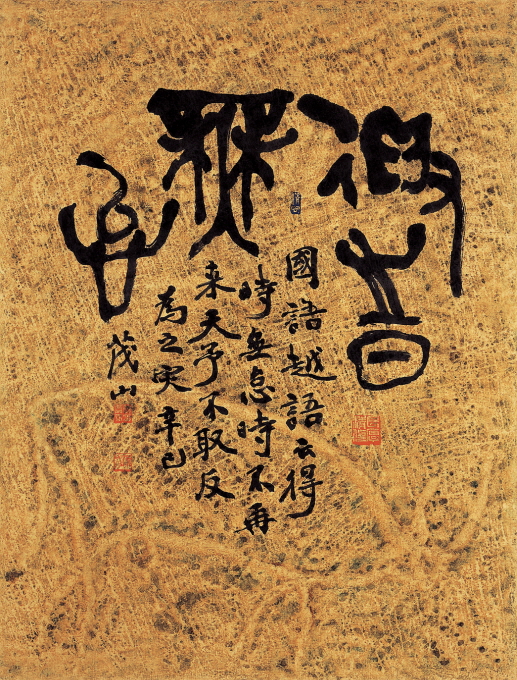 得時
無
怠
國語越語云得
時無怠時不再
来天予不取反
為之灾辛巳
茂山